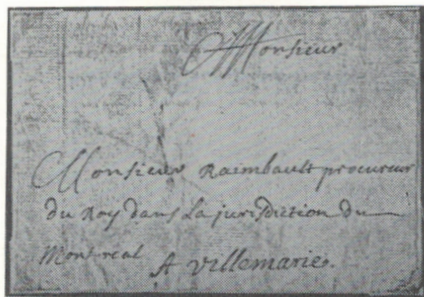 Monsieur
Monsieur Raimbault procureur
du Roy dans la jurisdiction du
Montreal A Villemarie.